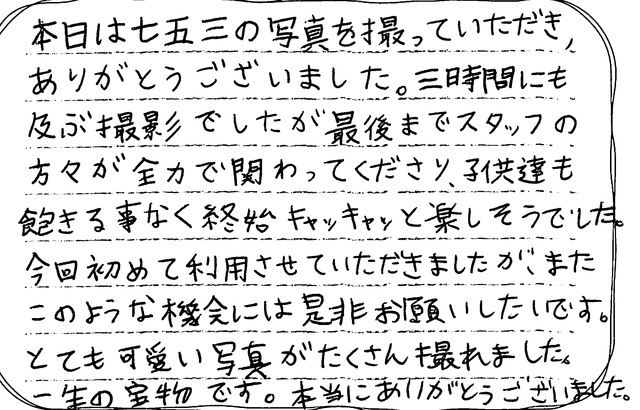 本日は七五三の写真を撮っていただき、
ありがとうございました。三時間にも
及ぶ撮影でしたが最後までスタッフの
方々が全力で関わってくださり、子供達も
飽きる事なく終始キャッキャッと楽しそうでした。
今回初めて利用させていただきましたが、また
このような機会には是非お願いしたいです。
とても可愛い写真がたくさん撮れました。
一生の宝物です。本当にありがとうございました。